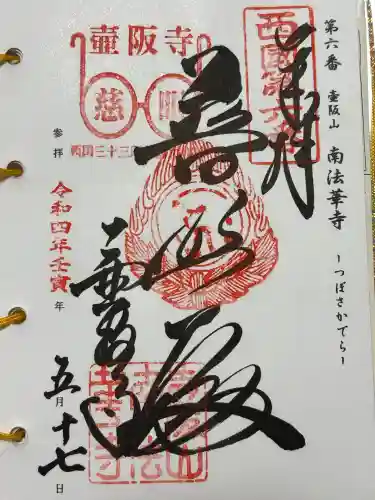 第六番 壺阪山 南法華寺 ーつぼさかでらー
奉拝
西國第六番
普照殿
壺阪寺
慈眼
西国三十三所
壺阪寺
参拝
令和四年壬寅年
五月十七日